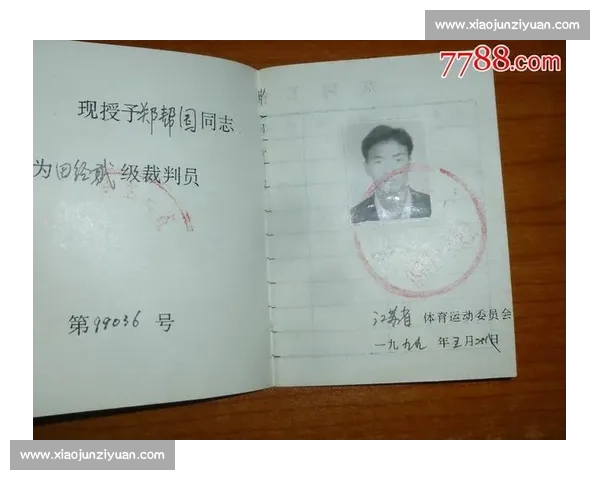 www.xiaojunziyuan.com
7788.com
现授予郑帮国同志
为田径贰级裁判员
第99036号
江苏省 体育运动委员会
一九九九年五月 日
www.xiaojunziyuan.com